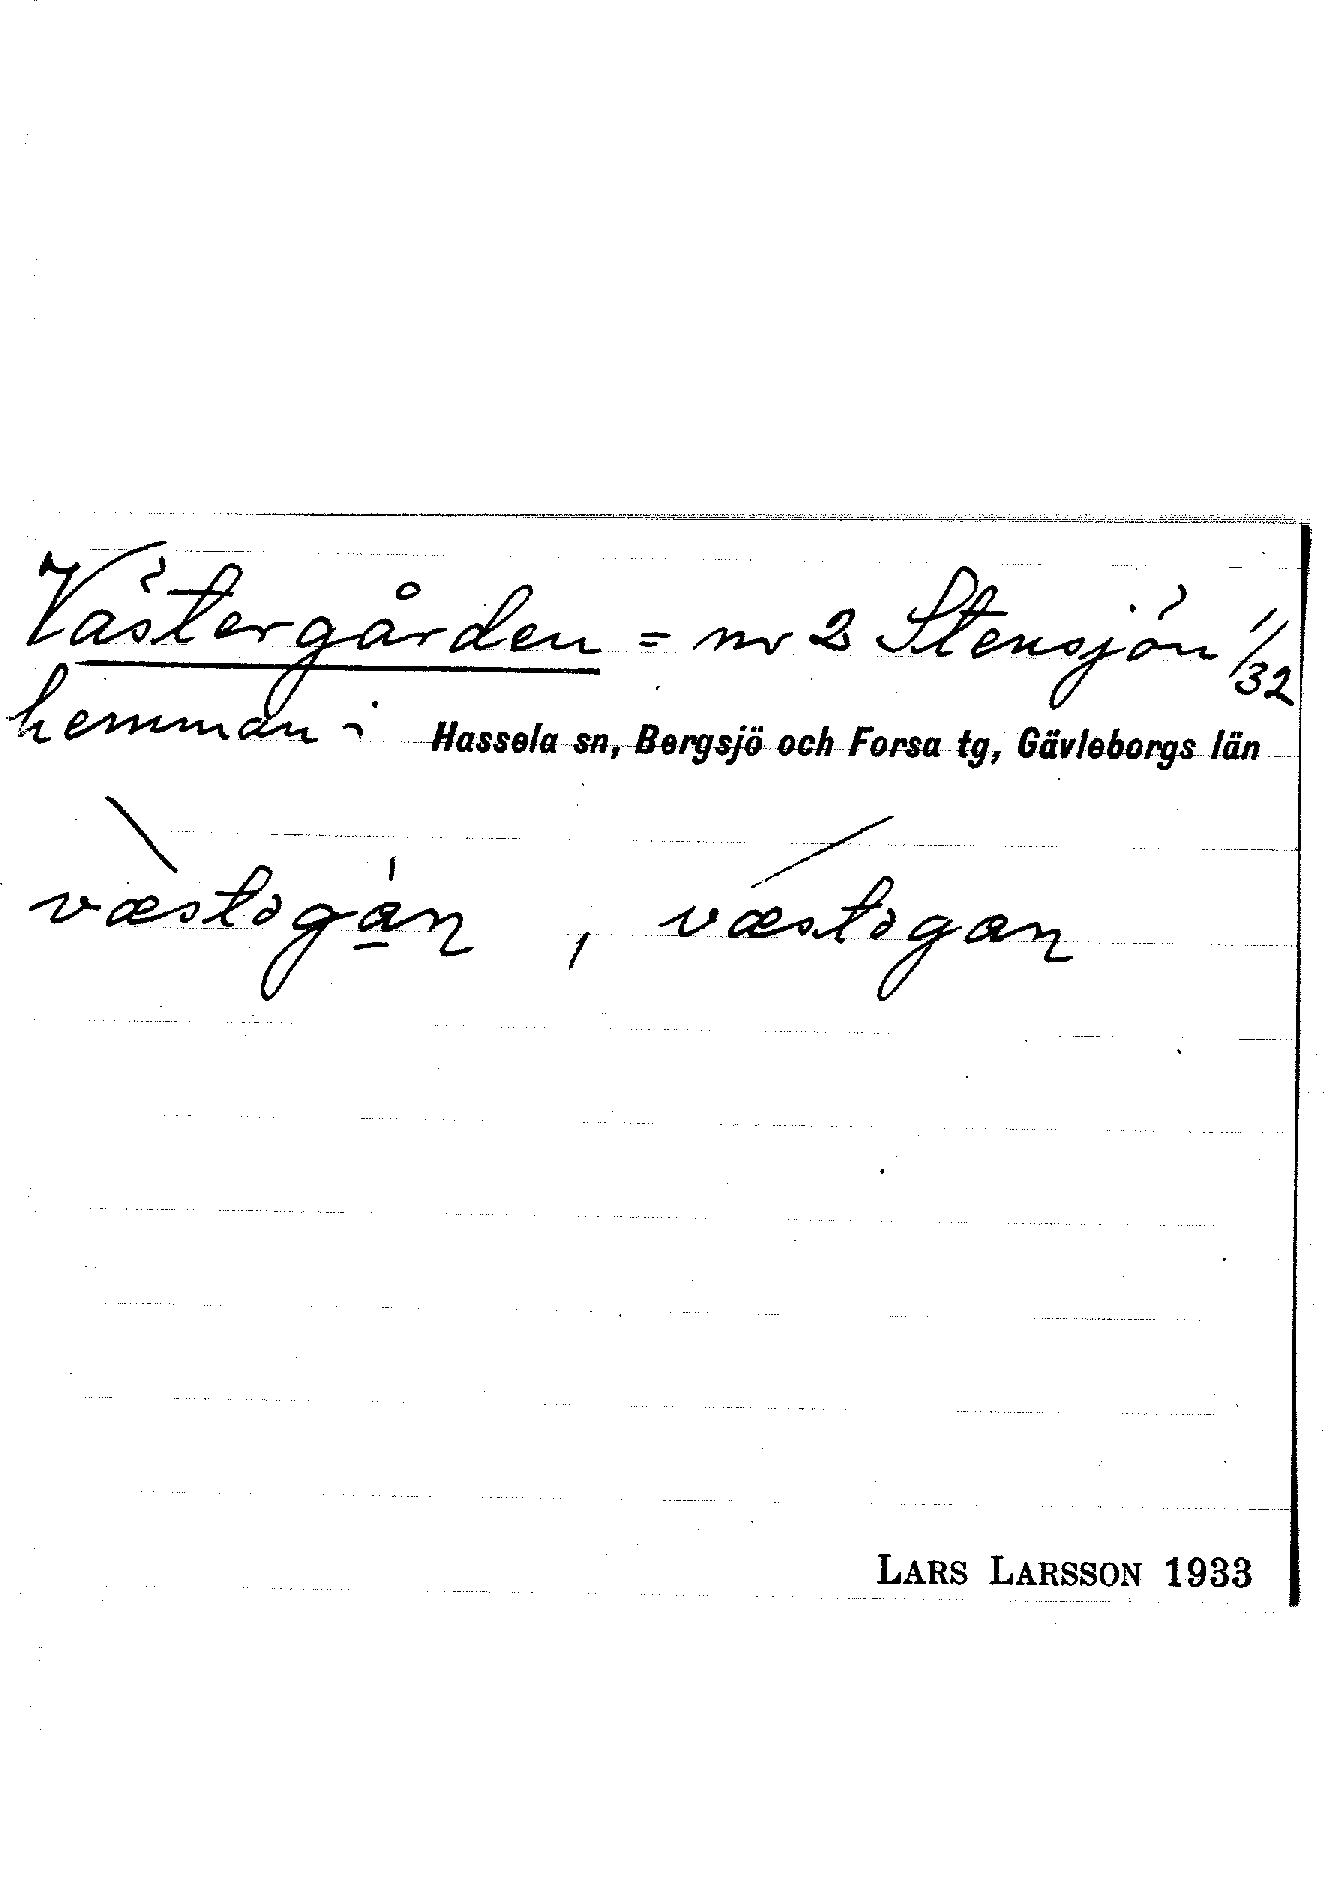 Västergården = nr 2 Stensjön 1/32
hemman i Hassela sn, Bergsjö och Forsa tg, Gävleborgs län
væstəgan, væstəgan
LARS LARSSON 1933